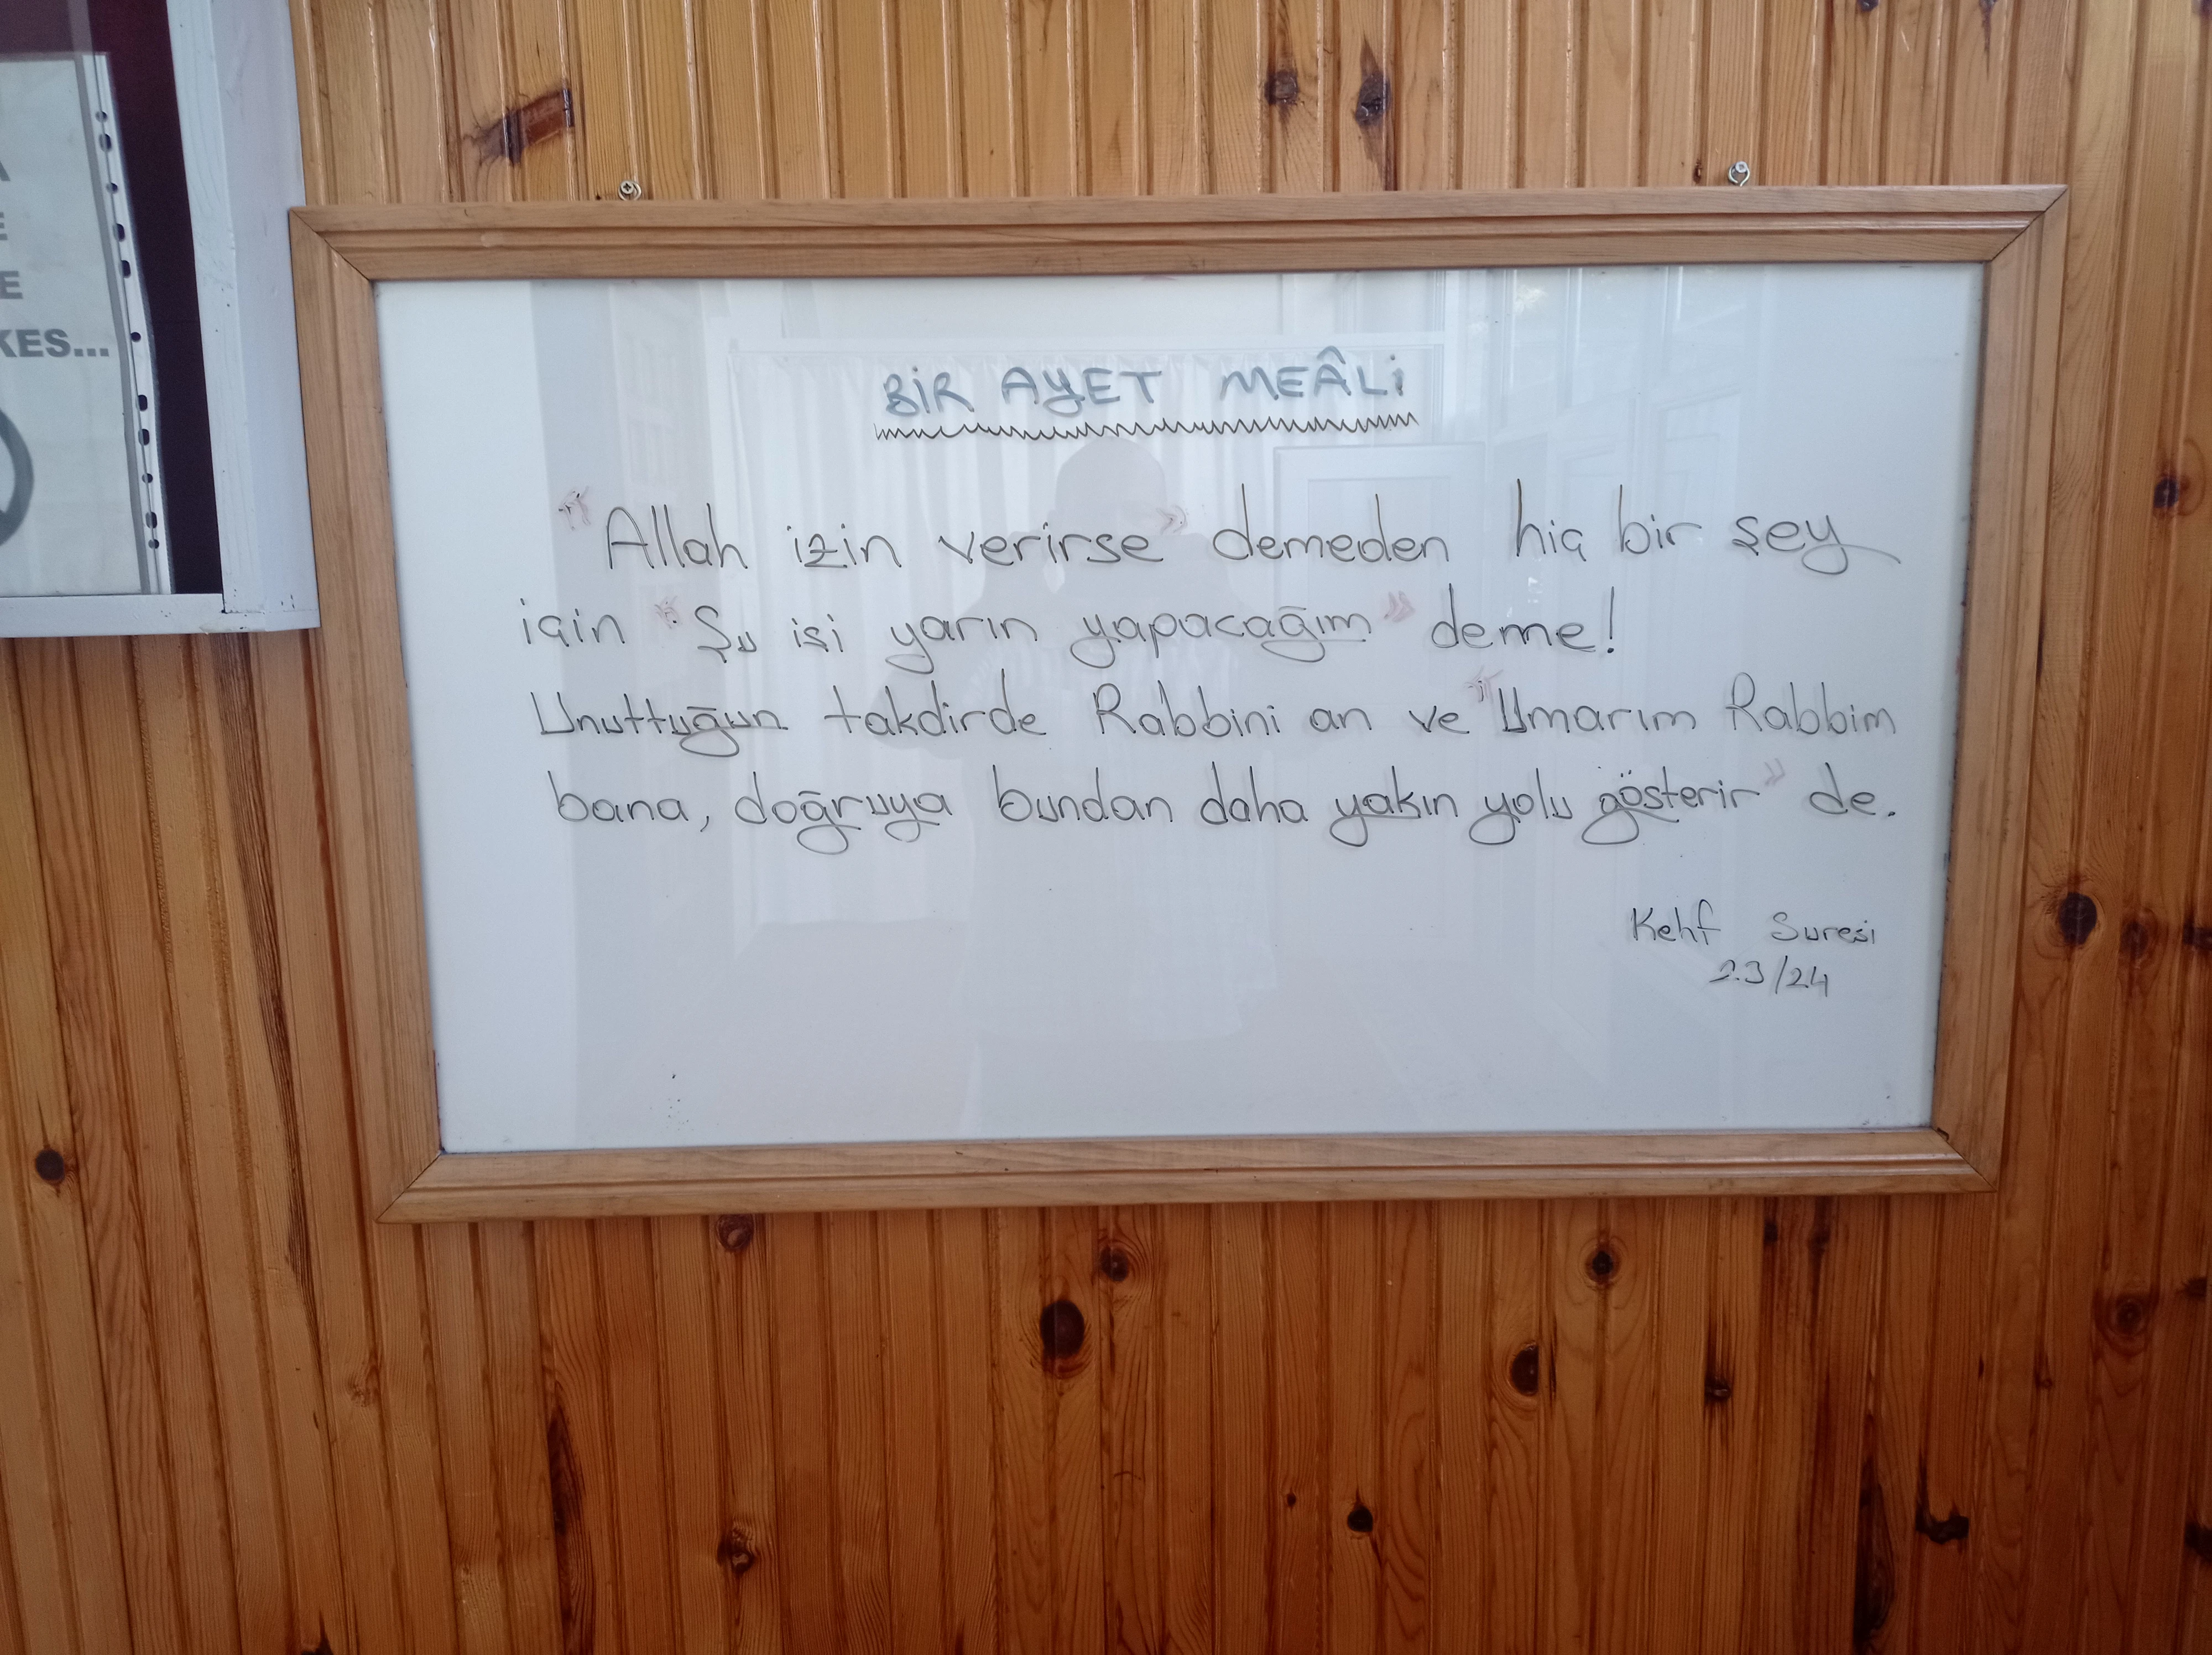 BİR AYET MEÂLİ
"Allah izin verirse" demeden hiç bir şey
için "Şu işi yarın yapacağım" deme!
Unuttuğun takdirde Rabbini an ve "Umarım Rabbim
bana, doğruya bundan daha yakın yolu gösterir" de.
Kehf Suresi
23/24
KES...